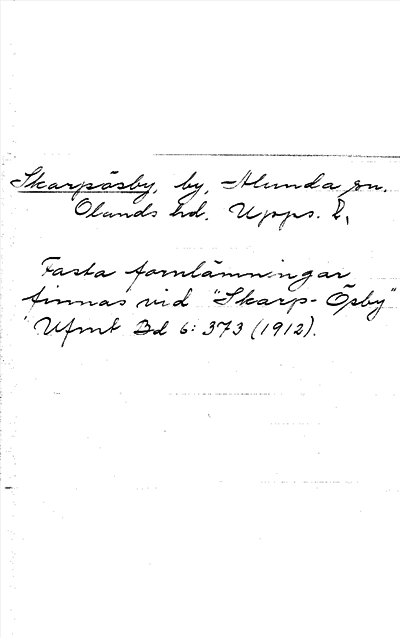 Skarpösby, by, Alunda sn.
Olands hd. Upps. l,
Fasta fornlämningar
finnas vid "Skarp-Ösby"
Ufmt Bd 6: 373 (1912).